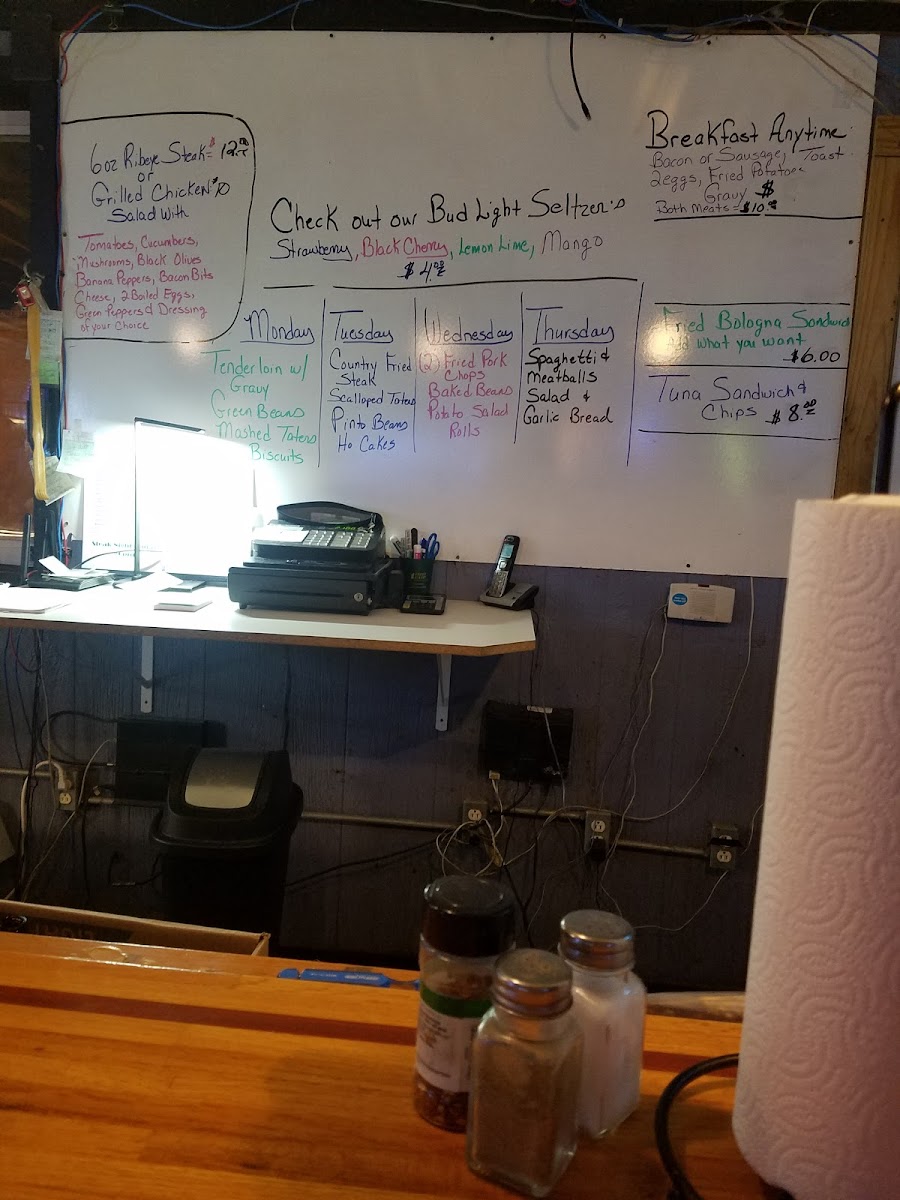 6oz Ribeye Steak = $12.00
or
Grilled Chicken $10
Salad with
Tomatoes, Cucumbers,
Mushrooms, Black Olives
Banana Peppers, Bacon Bits
Cheese, 2 Boiled Eggs,
Green Peppers & Dressing
of your Choice
Check out our Bud Light Seltzer's
Strawberry, Black Cherry, Lemon Lime, Mango
$4.00
Breakfast Anytime
Bacon or Sausage, Toast
2eggs, Fried Potatoes
Gravy $
Both Meats = $10.00
Monday
Tenderloin w/
Gravy
Green Beans
Mashed Taters
Biscuits
Tuesday
Country Fried
Steak
Scalloped Taters
Pinto Beans
Ho Cakes
Wednesday
(2) Fried Pork
Chops
Baked Beans
Potato Salad
Rolls
Thursday
Spaghetti &
Meatballs
Salad &
Garlic Bread
Fried Bologna Sandwich
Add what you want
$6.00
Tuna Sandwich &
Chips $8.00